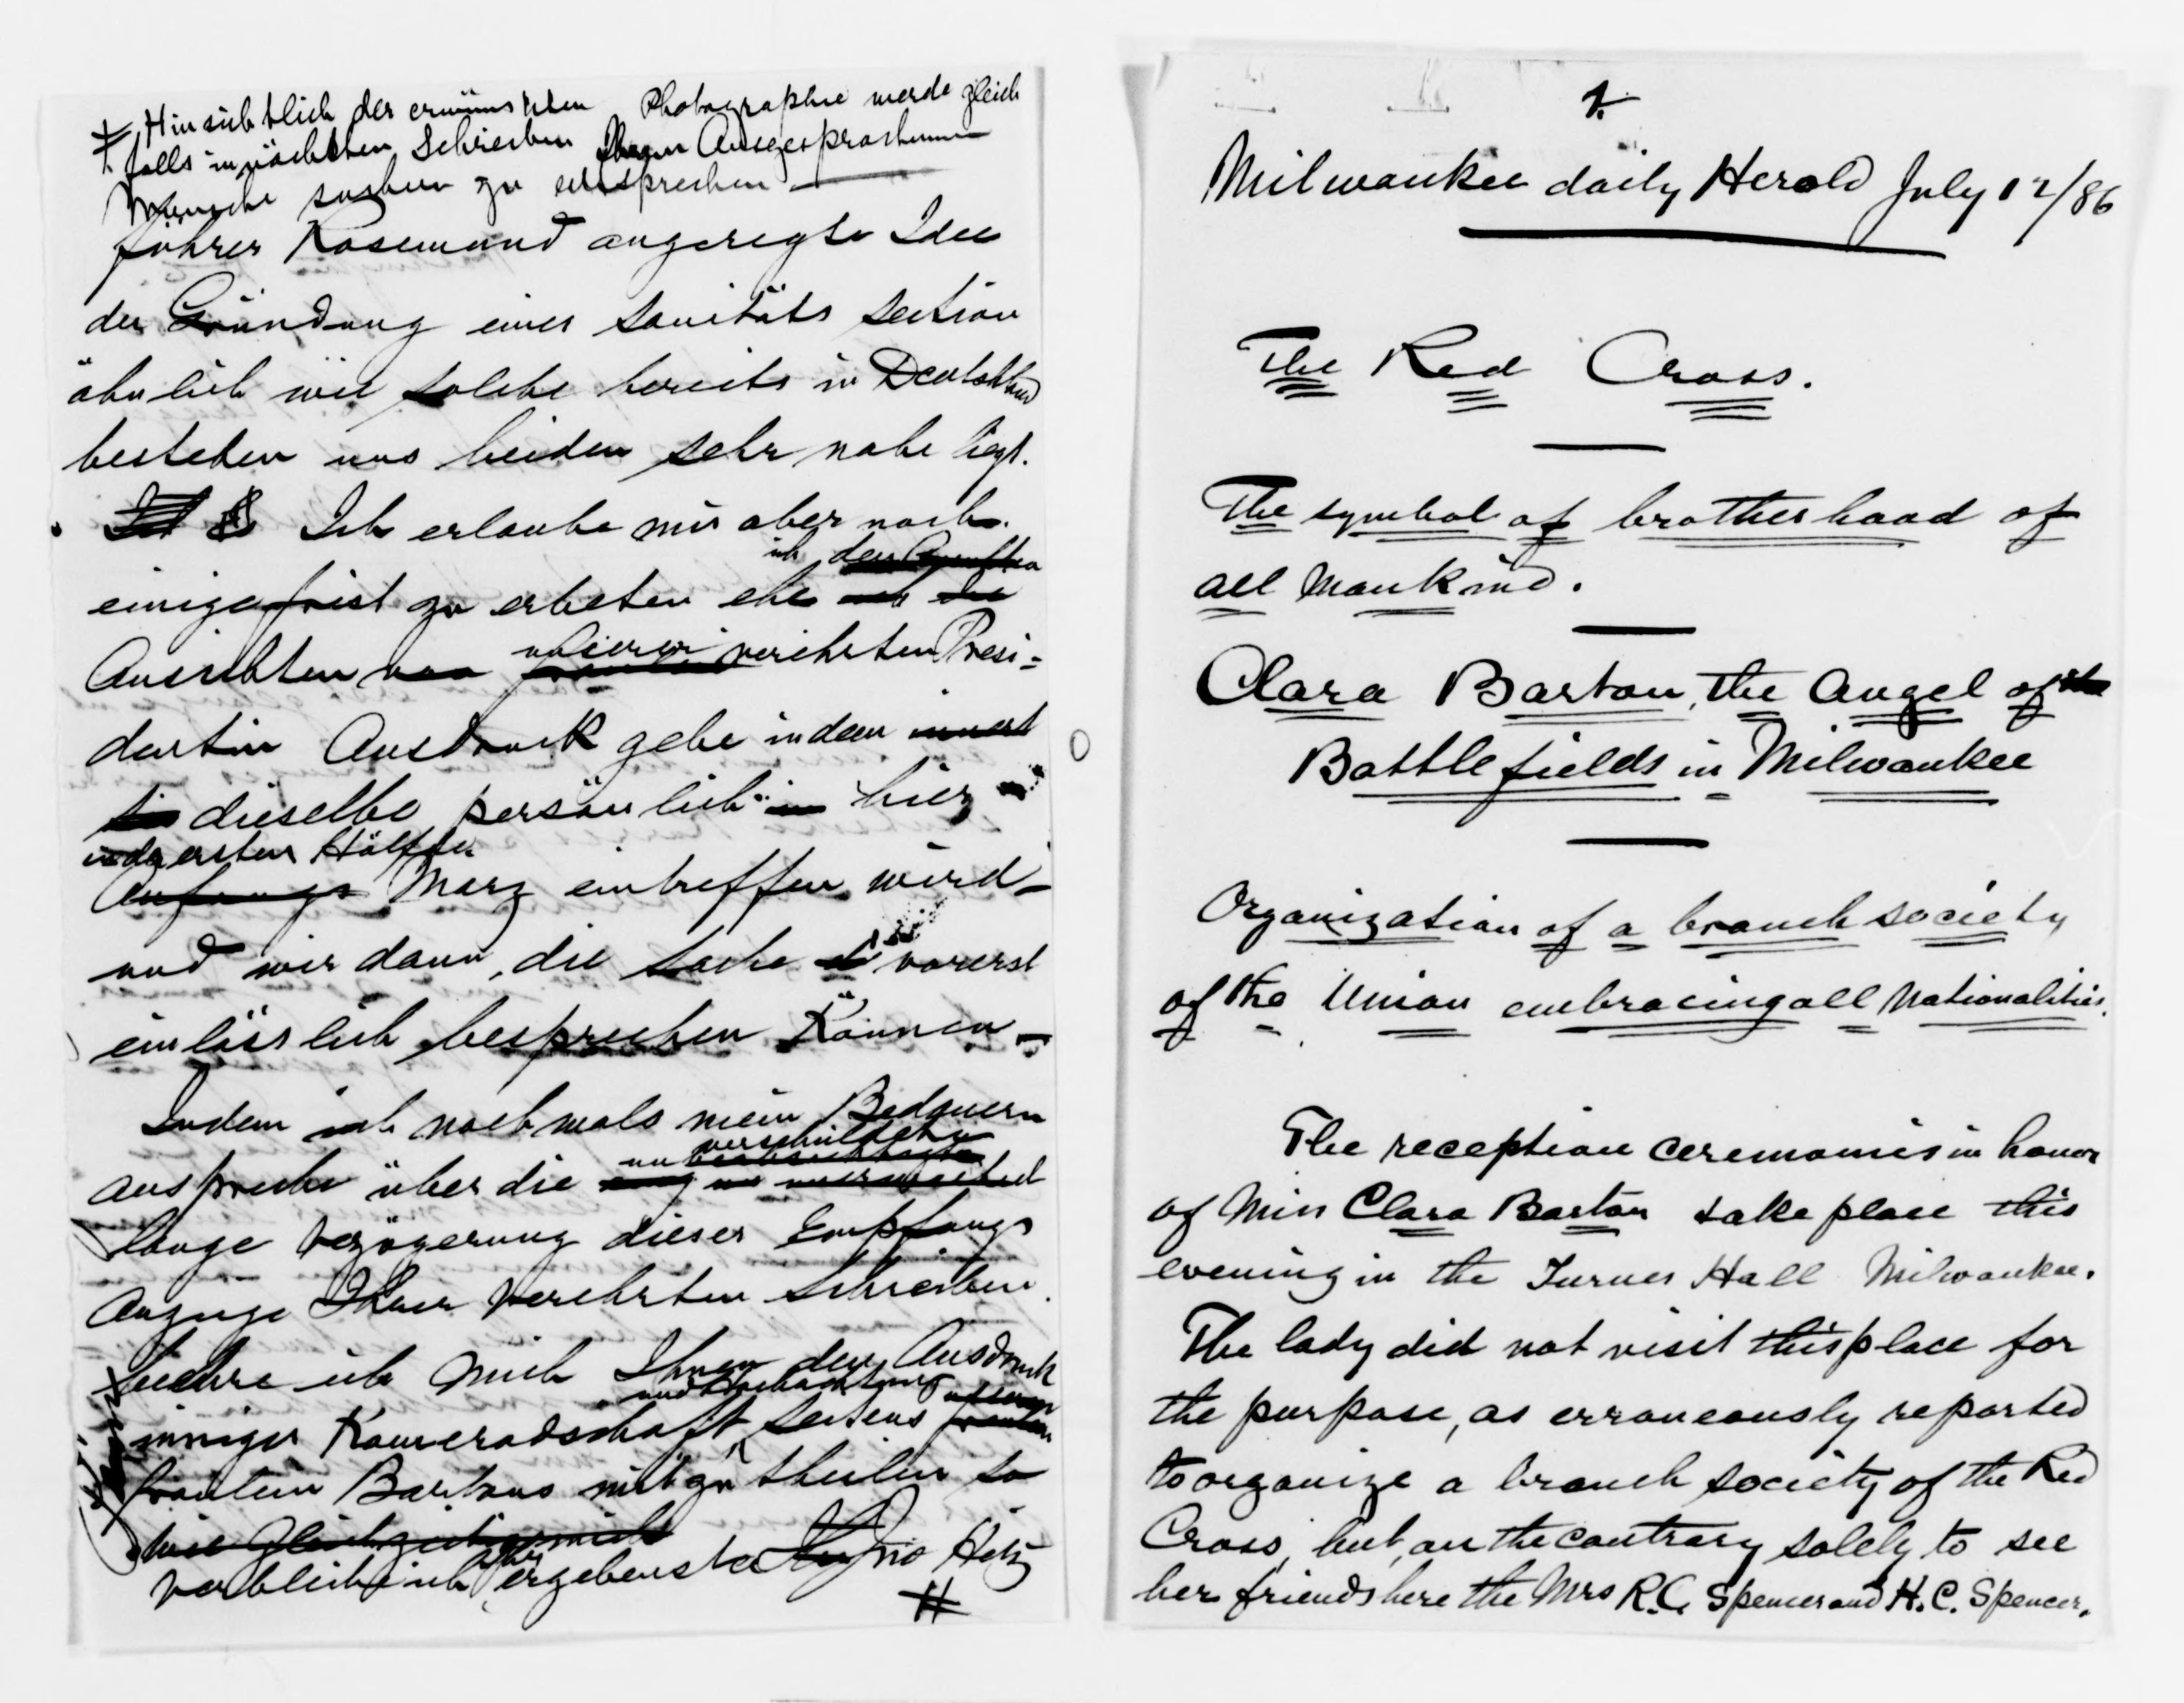 ‡ Hinsichtlich der erwünschten Photographie werde gleich
falls in nächsten Schreiben Ihrem Ausgesprochenen
Wunsche suchen zu entsprechen —
führer Rosemund angeregte Idee
der Gründung einer Sanitäts Section
ähnlich wie solche bereits in Deutschland
bestehen uns beiden sehr nahe liegt.
Ich erlaube mir aber noch
ich den
einige frist zu erbeten ehe
Ansichten unserer verehrten Presi=
dentin Ausdruck gebe indem
dieselbe persönlich hier
in der ersten Hälfte
Anfangs Marz eintreffen wird
und wir dann, die Sache vorerst
einlässlich besprechen können —
Indem ich nochmals mein Bedauern
unverschuldete
ausspreche über die
lange Verzögerung dieser Empfangs
Anzeige Ihrer verehrten Schreiben.
beehre ich mich Ihnen den Ausdruck
und Hochachtung unserer
inniger Kameradschaft, seitens
fräulein Bartons mitzutheilen so
wie Gleichzeitig mich
verbleibe ich Ihr ergebenster Jno Hitz
#
1.
Milwaukee daily Herold July 12/86
The Red Cross.
The symbol of brotherhood of
all Mankind.
Clara Barton, the Angel of the
Battlefields in Milwaukee
Organization of a branch society
of the Union embracing all Nationalities.
The reception ceremonies in honor
of Miss Clara Barton take place this
evening in the Turner Hall Milwaukee.
The lady did not visit this place for
the purpose, as erroneously reported
to organize a branch society of the Red
Cross, but, on the contrary solely to see
her friends here the Mrs R.C. Spencer and H.C. Spencer.